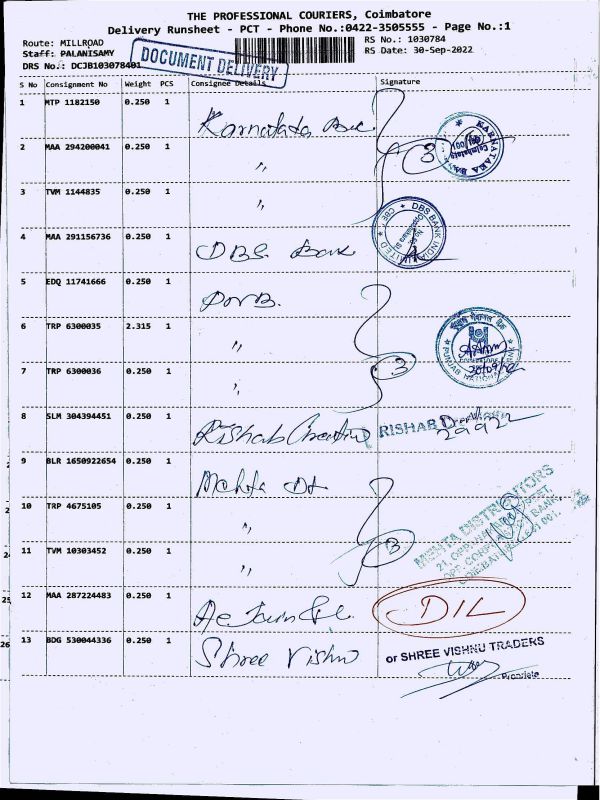 THE PROFESSIONAL COURIERS, Coimbatore
Delivery Runsheet - PCT - Phone No.:0422-3505555 - Page No.:1
Route: MILLROAD
RS No.: 1030784
Staff: PALANISAMY
RS Date: 30-Sep-2022
DRS No.: DCJB103078401
DOCUMENT DELIVERY
S No Consignment No Weight PCS Consignee Details Signature
1 MTP 1182150 0.250 1 Karnataka Bank
3
KARNATAKA BANK
Coimbatore
2 MAA 294200041 0.250 1 ,,
3 TVM 1144835 0.250 1 ,,
4 MAA 291156736 0.250 1 DBS Bank
DBS BANK INDIA LIMITED * CBE *
5 EDQ 11741666 0.250 1 PNB.
6 TRP 6300035 2.315 1 ,,
3
PUNJAB NATIONAL BANK
30/09/22
7 TRP 6300036 0.250 1 ,,
8 SLM 304394451 0.250 1 Rishab
RISHAB
29922
9 BLR 1650922654 0.250 1 Mehta Dt
10 TRP 4675105 0.250 1 ,,
3
MEHTA DISTRIBUTORS
11 TVM 10303452 0.250 1 ,,
12 MAA 287224483 0.250 1
DIL
13 BDG 530044336 0.250 1 Shree Vishnu
or SHREE VISHNU TRADERS
Propriete
26